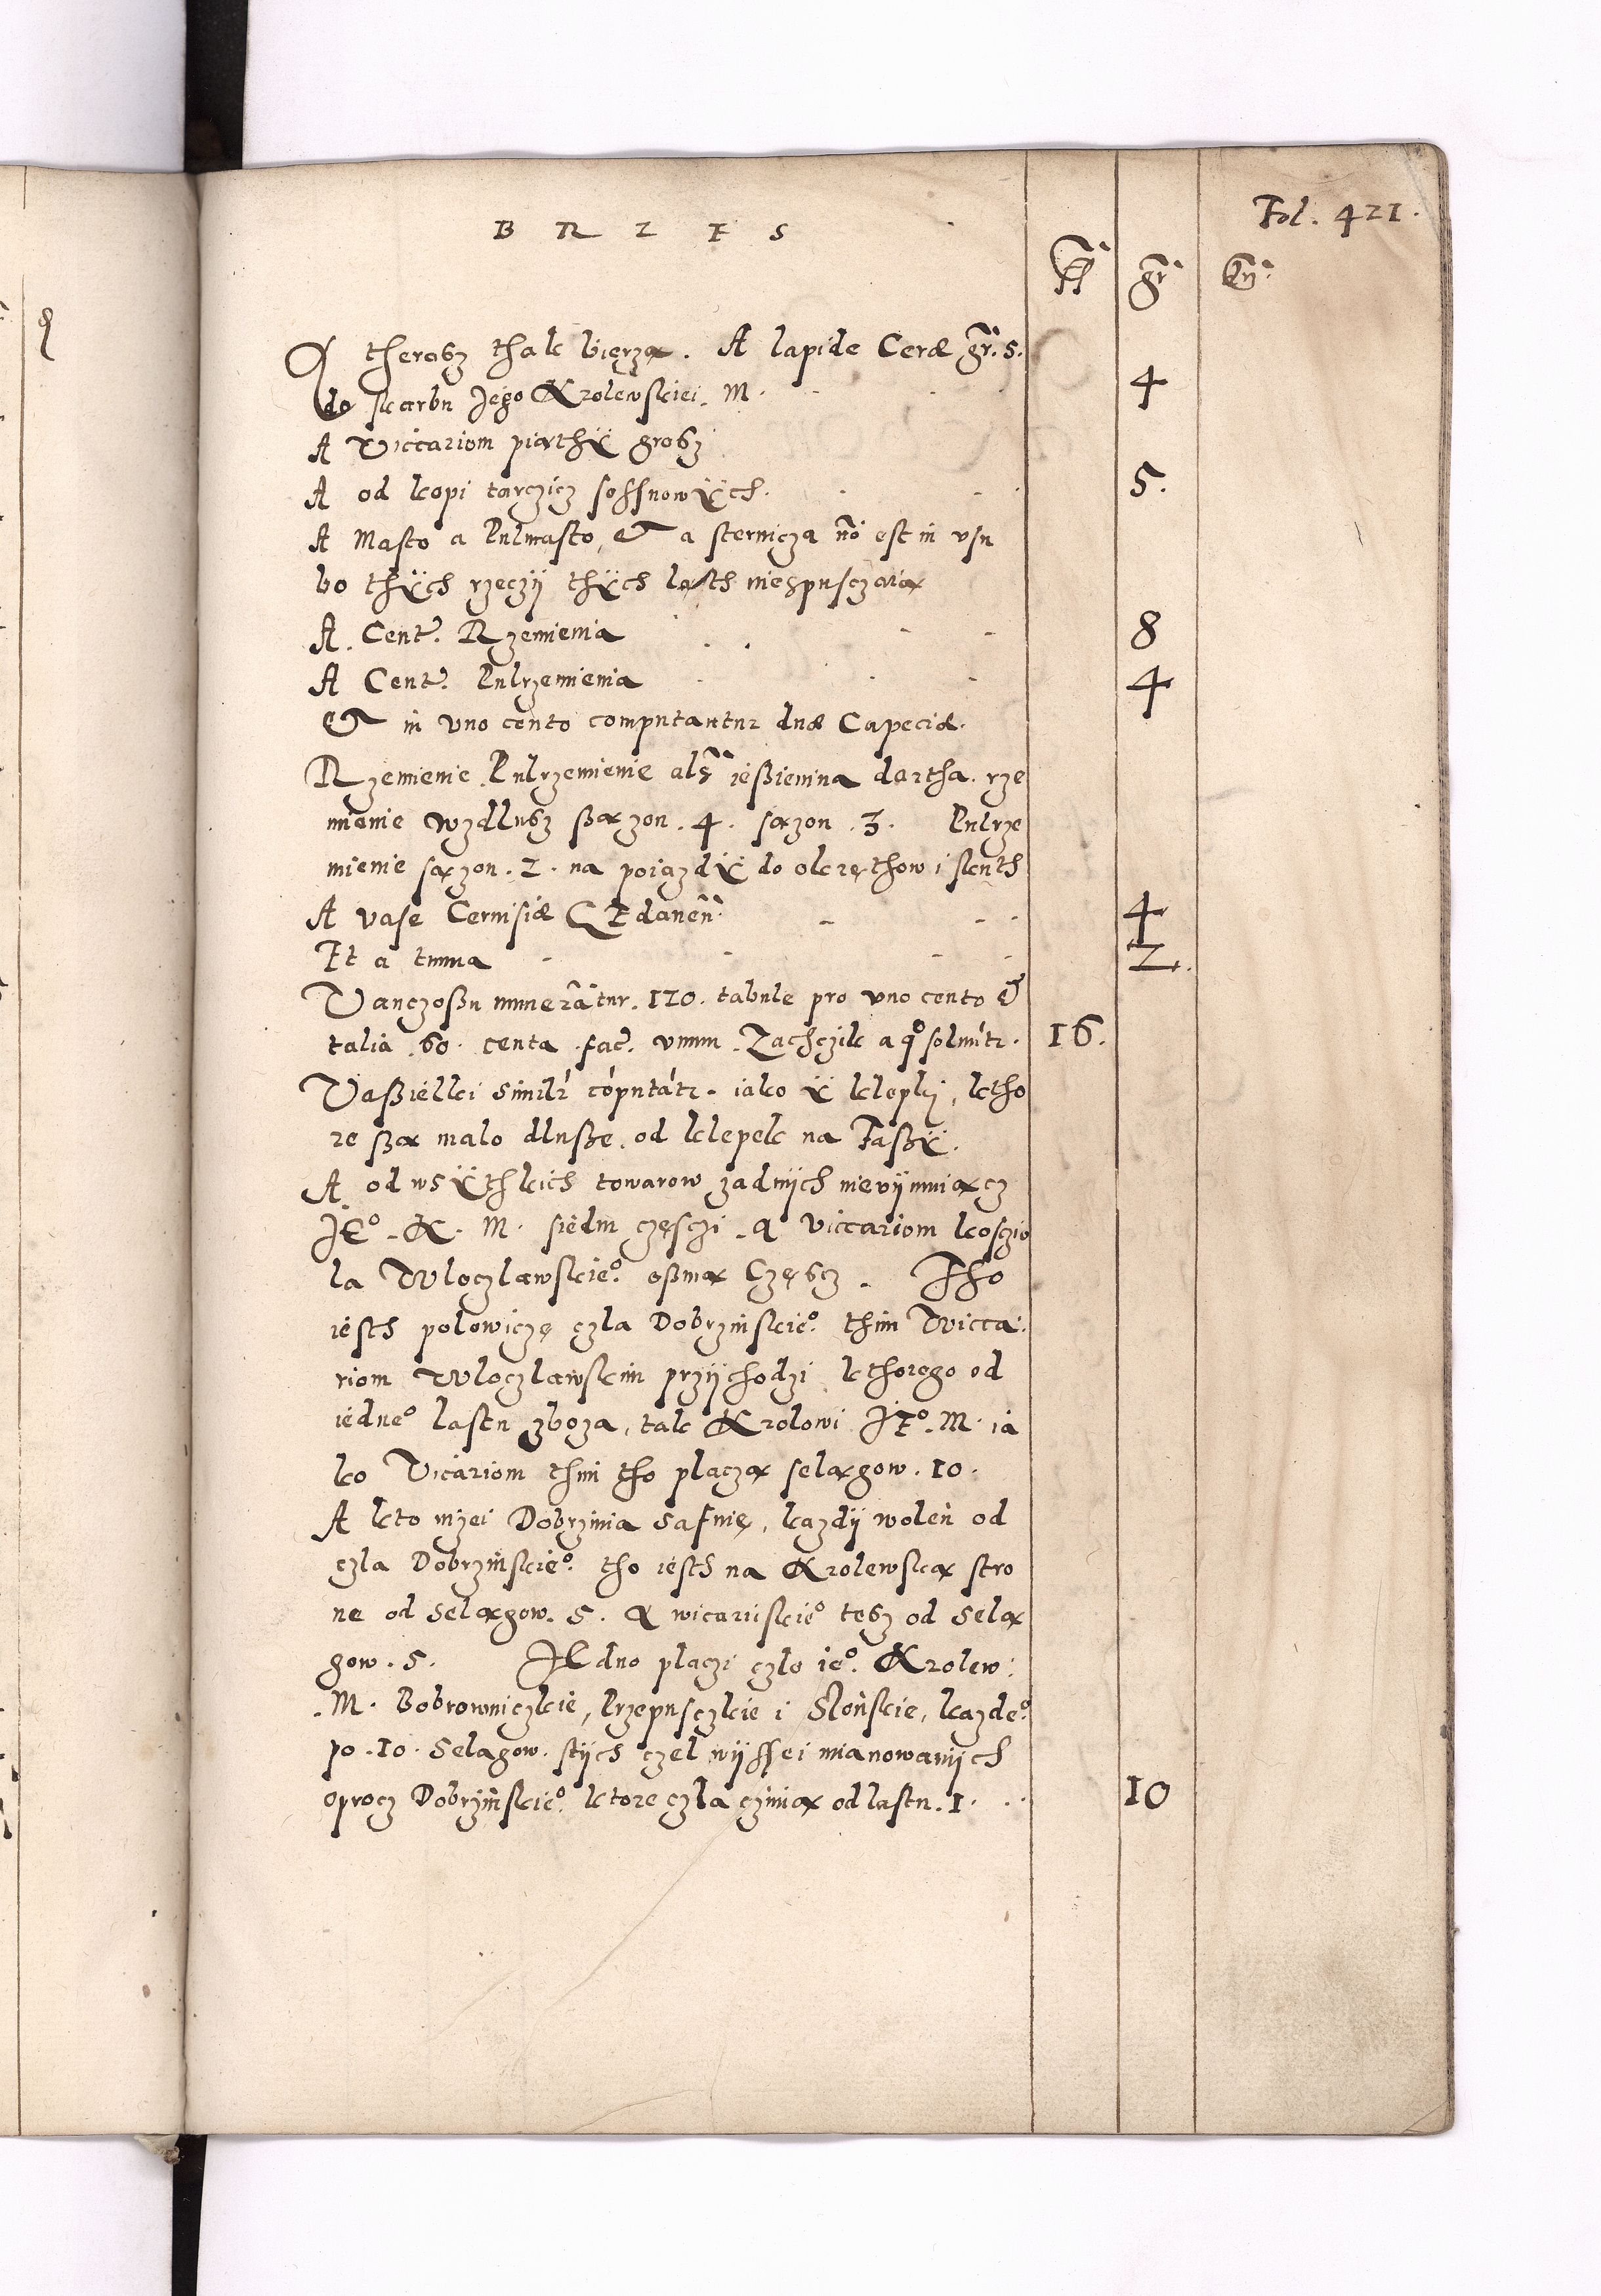 Fol. 421.
B R Z E S
fl gr dn
A therasz thak bierzą. A lapide Ceræ gr. 5.
do skarbu Jego Krolewskiei. M. 4
A Viccariom piąthÿ grosz
A od kopi tarczicz sossnowÿch. 5.
A Masto a Pulmasto, et a sternicza nō est in usu
bo thÿch rzeczÿ thÿch lath niespusczaią
A. Cent. Rzemienia 8
A Cent. Pulrzemienia 4
et in uno cento computantur duæ Capeciæ.
Rzemienie Pulrzemienie als iessienina darta. rze
mienie wzdlusz ssązon. 4. sązon .3. Pulrze
mienie sązon. 2. na poiazdÿ do okręthow i skuth
A vase Cervisiæ Gedanen. 4
It a tunna 2.
Vanczossu numerātur. 120. tabule pro uno cento et
talia .60. centa .fac. unum Zachczik a qo solvūtr. 16.
Vassielki similr cōputātr. iako ÿ klepki, ktho
re ssą malo dlusse. od klepek na Fassÿ.
A od wsÿthkich towarow zadnÿch nievÿmuiącz
JEo. K. M. siedm częsczi a viccariom kosczio
la Wloczlawskieo. ossmą Częscz. Tho
iesth polowiczę czla Dobrzinskieo. thim Wicca:
riom Wloczlawskim przÿchodzi kthorego od
iedneo lastu zboza, tak Krolowi JEo. M. ia
ko Vicariom thim tho placzą seląngow. 10.
A kto nizei Dobrzinia Safuię, kazdÿ wolen od
czla Dobrzinskieo. tho iesth na Krolewską stro
ne od Selągow. 5. A wicariiskieo tesz od Selą
gow. 5. Jedno placzi czlo ieo. Krolew:
M. Bobrowniczkie, Przepusczkie i Slonskie, kazdeo.
po .10. Selągow. stÿch czel wÿssei mianowanÿch
oprocz Dobrzinskieo. ktore czla czinią od lastu. 1. 10